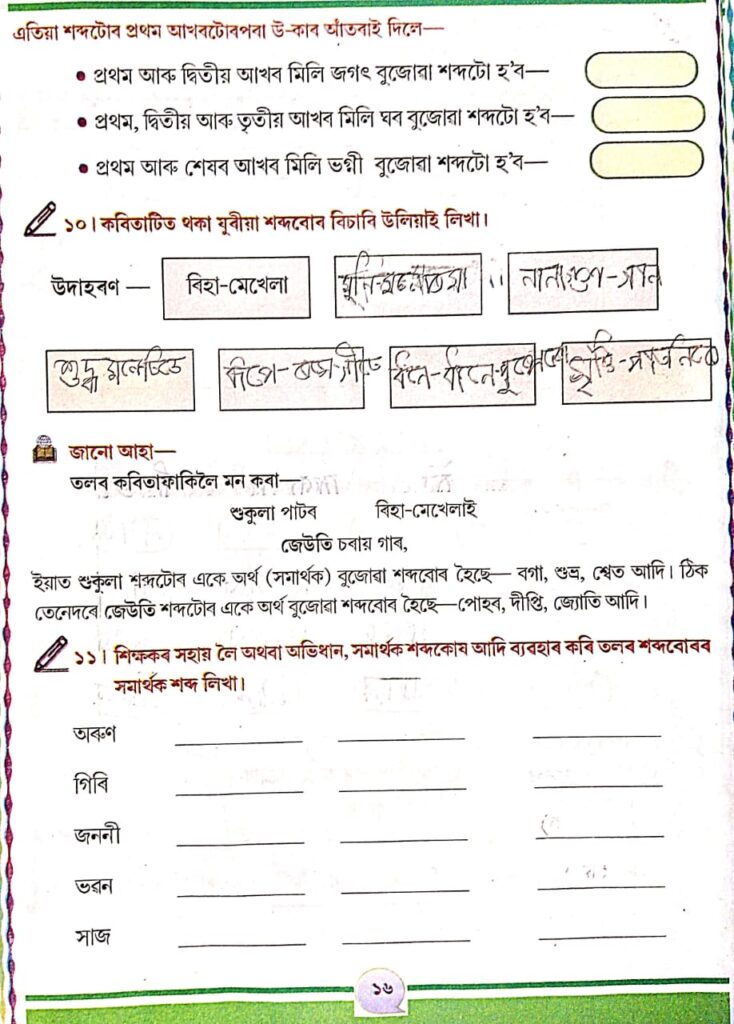 এতিয়া শব্দটোৰ প্ৰথম আখৰটোৰপৰা উ-কাৰ আঁতৰাই দিলে—
• প্ৰথম আৰু দ্বিতীয় আখৰ মিলি জগৎ বুজোৱা শব্দটো হ'ব—
• প্ৰথম, দ্বিতীয় আৰু তৃতীয় আখৰ মিলি ঘৰ বুজোৱা শব্দটো হ'ব—
• প্ৰথম আৰু শেষৰ আখৰ মিলি ভগ্নী বুজোৱা শব্দটো হ'ব—
১০। কবিতাটিত থকা যুৰীয়া শব্দবোৰ বিচাৰি উলিয়াই লিখা।
উদাহৰণ — বিহা-মেখেলা
জানো আহা—
তলৰ কবিতাফাকিলৈ মন কৰা—
শুকুলা পাটৰ বিহা-মেখেলাই
জেউতি চৰায় গাৰ,
ইয়াত শুকুলা শব্দটোৰ একে অৰ্থ (সমাৰ্থক) বুজোৱা শব্দবোৰ হৈছে— বগা, শুভ্ৰ, শ্বেত আদি। ঠিক
তেনেদৰে জেউতি শব্দটোৰ একে অৰ্থ বুজোৱা শব্দবোৰ হৈছে—পোহৰ, দীপ্তি, জ্যোতি আদি।
১১। শিক্ষকৰ সহায় লৈ অথবা অভিধান, সমাৰ্থক শব্দকোষ আদি ব্যৱহাৰ কৰি তলৰ শব্দবোৰৰ
সমাৰ্থক শব্দ লিখা।
অৰুণ
গিৰি
জননী
ভৱন
সাজ
১৬